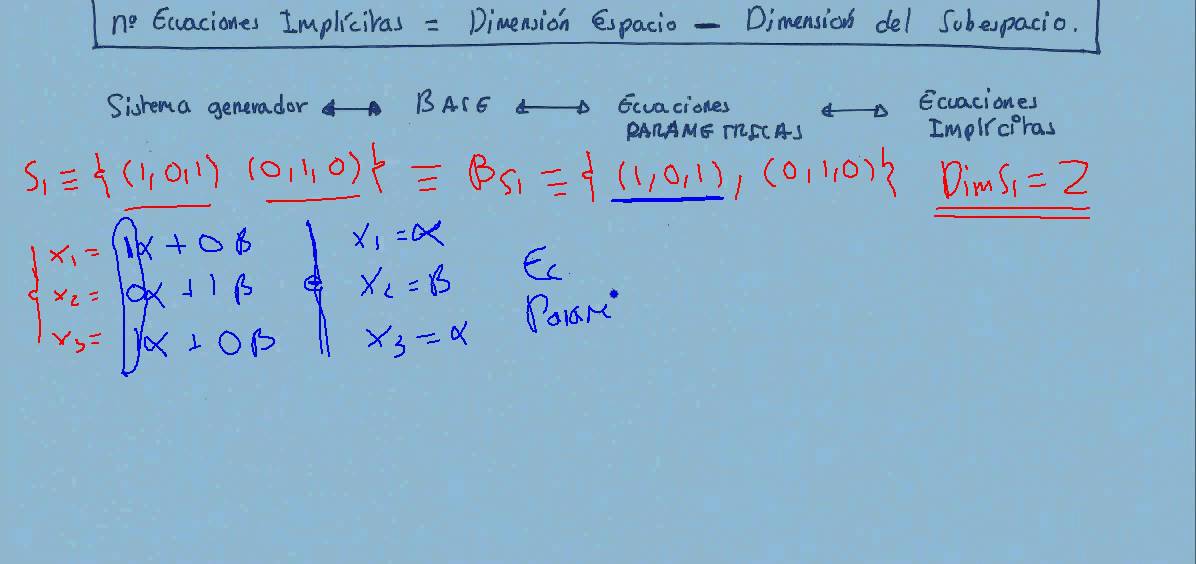 nº Ecuaciones Implícitas = Dimensión Espacio – Dimensión del Subespacio.
Sistema generador ↔ BASE ↔ Ecuaciones PARAMETRICAS ↔ Ecuaciones Implícitas
S₁ ≡ { (1,0,1) (0,1,0) } ≡ B_S₁ ≡ { (1,0,1), (0,1,0) } Dim S₁ = 2
x₁ = 1α + 0β x₁ = α
x₂ = 0α + 1β x₂ = β
x₃ = 1α + 0β x₃ = α
Ec.
Param